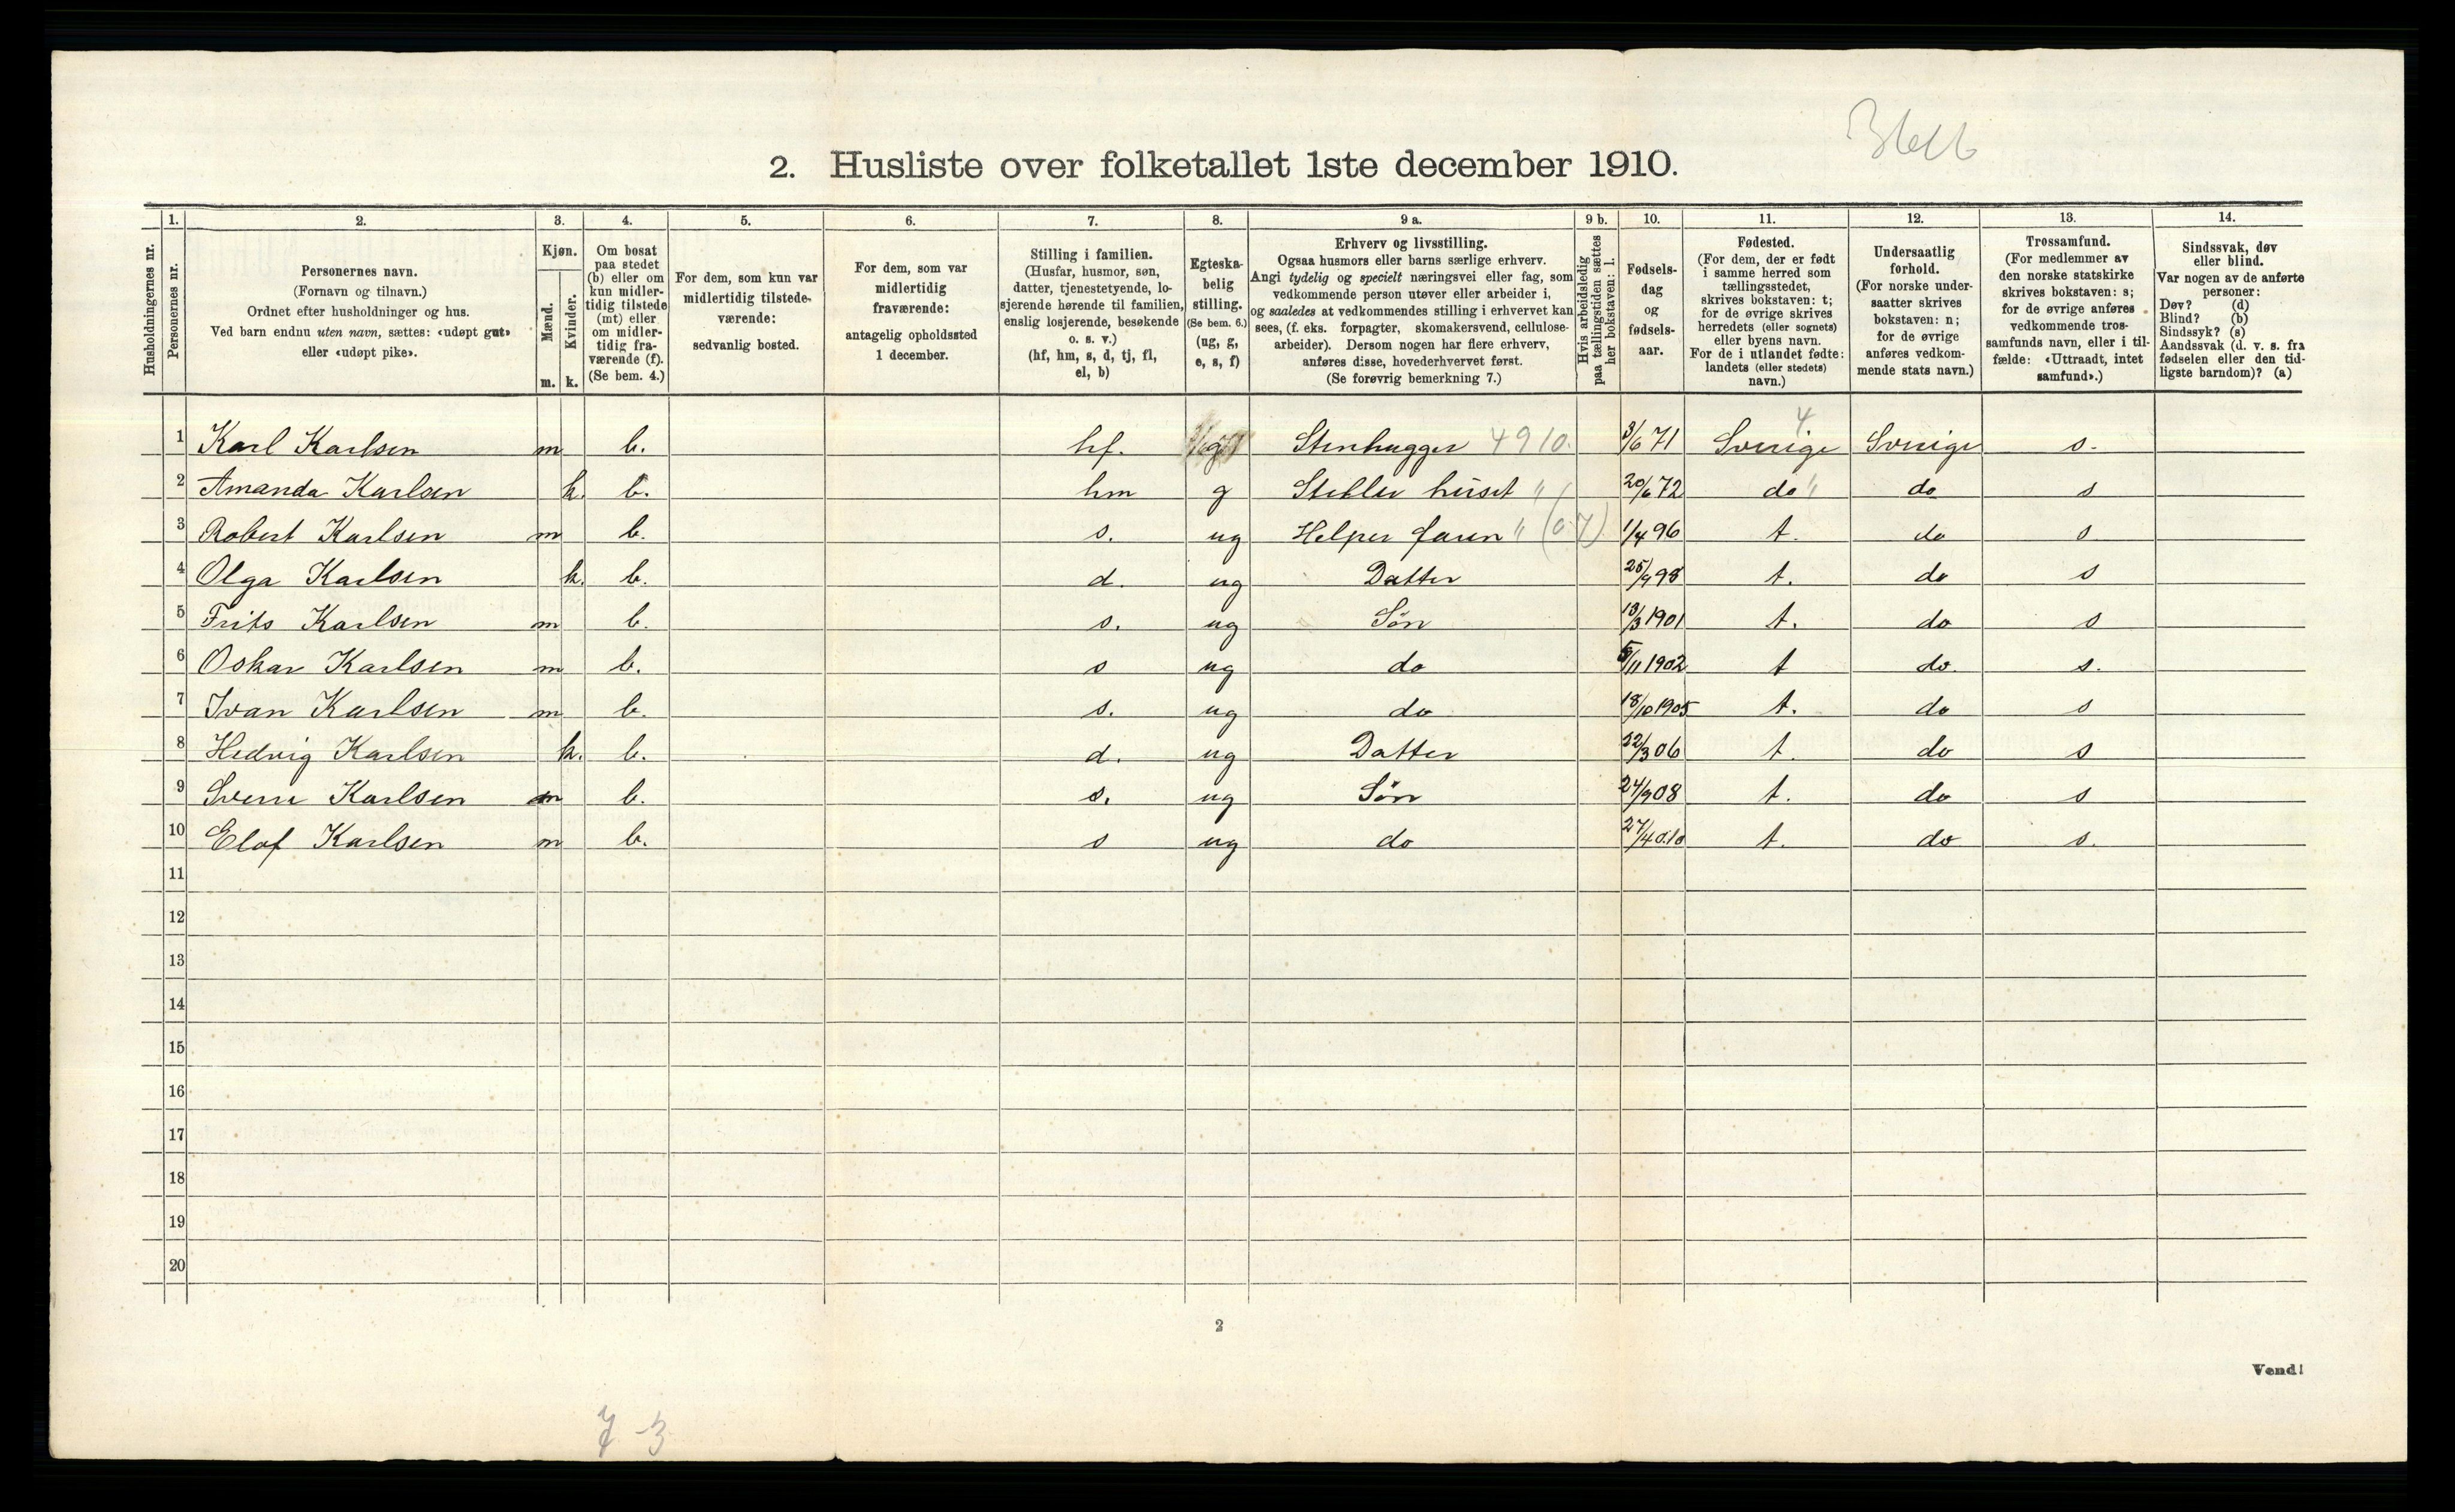 2. Husliste over folketallet 1ste december 1910.
Husholdningernes nr.
1. Personernes nr.
2. Personernes navn.
(Fornavn og tilnavn.)
Ordnet efter husholdninger og hus.
Ved barn endnu uten navn, sættes: «udøpt gut»
eller «udøpt pike».
3. Kjøn.
Mænd. m.
Kvinder. k.
4. Om bosat
paa stedet
(b) eller om
kun midler-
tidig tilstede
(mt) eller
om midler-
tidig fra-
værende (f).
(Se bem. 4.)
5. For dem, som kun var
midlertidig tilstede-
værende:
sedvanlig bosted.
6. For dem, som var
midlertidig
fraværende:
antagelig opholdssted
1 december.
7. Stilling i familien.
(Husfar, husmor, søn,
datter, tjenestetyende, lo-
sjerende hørende til familien,
enslig losjerende, besøkende
o. s. v.)
(hf, hm, s, d, tj, fl,
el, b)
8. Egteska-
belig
stilling.
(Se bem. 6.)
(ug, g,
e, s, f)
9 a. Erhverv og livsstilling.
Ogsaa husmors eller barns særlige erhverv.
Angi tydelig og specielt næringsvei eller fag, som
vedkommende person utøver eller arbeider i,
og saaledes at vedkommendes stilling i erhvervet kan
sees, (f. eks. forpagter, skomakersvend, cellulose-
arbeider). Dersom nogen har flere erhverv,
anføres disse, hovederhvervet først.
(Se forøvrig bemerkning 7.)
9 b. Hvis arbeidsledig
paa tællingstiden sættes
her bokstaven: l.
10. Fødsels-
dag
og
fødsels-
aar.
11. Fødested.
(For dem, der er født
i samme herred som
tællingsstedet,
skrives bokstaven: t;
for de øvrige skrives
herredets (eller sognets)
eller byens navn.
For de i utlandet fødte:
landets (eller stedets)
navn.)
12. Undersaatlig
forhold.
(For norske under-
saatter skrives
bokstaven: n;
for de øvrige
anføres vedkom-
mende stats navn.)
13. Trossamfund.
(For medlemmer av
den norske statskirke
skrives bokstaven: s;
for de øvrige anføres
vedkommende tros-
samfunds navn, eller i til-
fælde: «Uttraadt, intet
samfund».)
14. Sindssvak, døv
eller blind.
Var nogen av de anførte
personer:
Døv? (d)
Blind? (b)
Sindssyk? (s)
Aandssvak (d. v. s. fra
fødselen eller den tid-
ligste barndom)? (a)
4
1 Karl Karlsen m b. hf. g Stenhugger 4910. 3/6 71 Sverige Sverige s.
2 Amanda Karlsen k. b. hm g Steller huset " 20/6 72 do " do s
3 Robert Karlsen m b. s. ug Helper faren " (07) 1/4 96 t. do s
4 Olga Karlsen k. b. d. ug Datter 25/9 98 t. do s
5 Frits Karlsen m b. s. ug Søn 13/3 1901 t. do s
6 Oskar Karlsen m b. s ug do 5/11 1902 t do. s.
7 Ivan Karlsen m b. s. ug do 18/10 1905 t. do s
8 Hedvig Karlsen k. b. d. ug Datter 22/3 06 t. do s
9 Sverre Karlsen m b. s. ug Søn 24/9 08 t. do s
10 Elof Karlsen m b. s ug do 27/4 010 t. do s.
11
12
13
14
15
16
17
18
19
20
2
Vend!
7-3